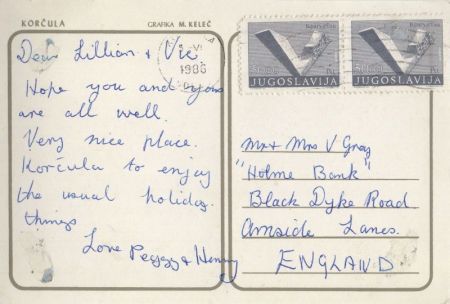 KORČULA
GRAFIKA M. KELEČ
Dear Lillian + Vic
Hope you and yours
are all well.
Very nice place.
Korčula to enjoy
the usual holiday
things
Love Peggy & Henny
1986
JUGOSLAVIJA
JUGOSLAVIJA
Mr + Mrs V Gray
"Holme Bank"
Black Dyke Road
Arnside Lancs.
ENGLAND